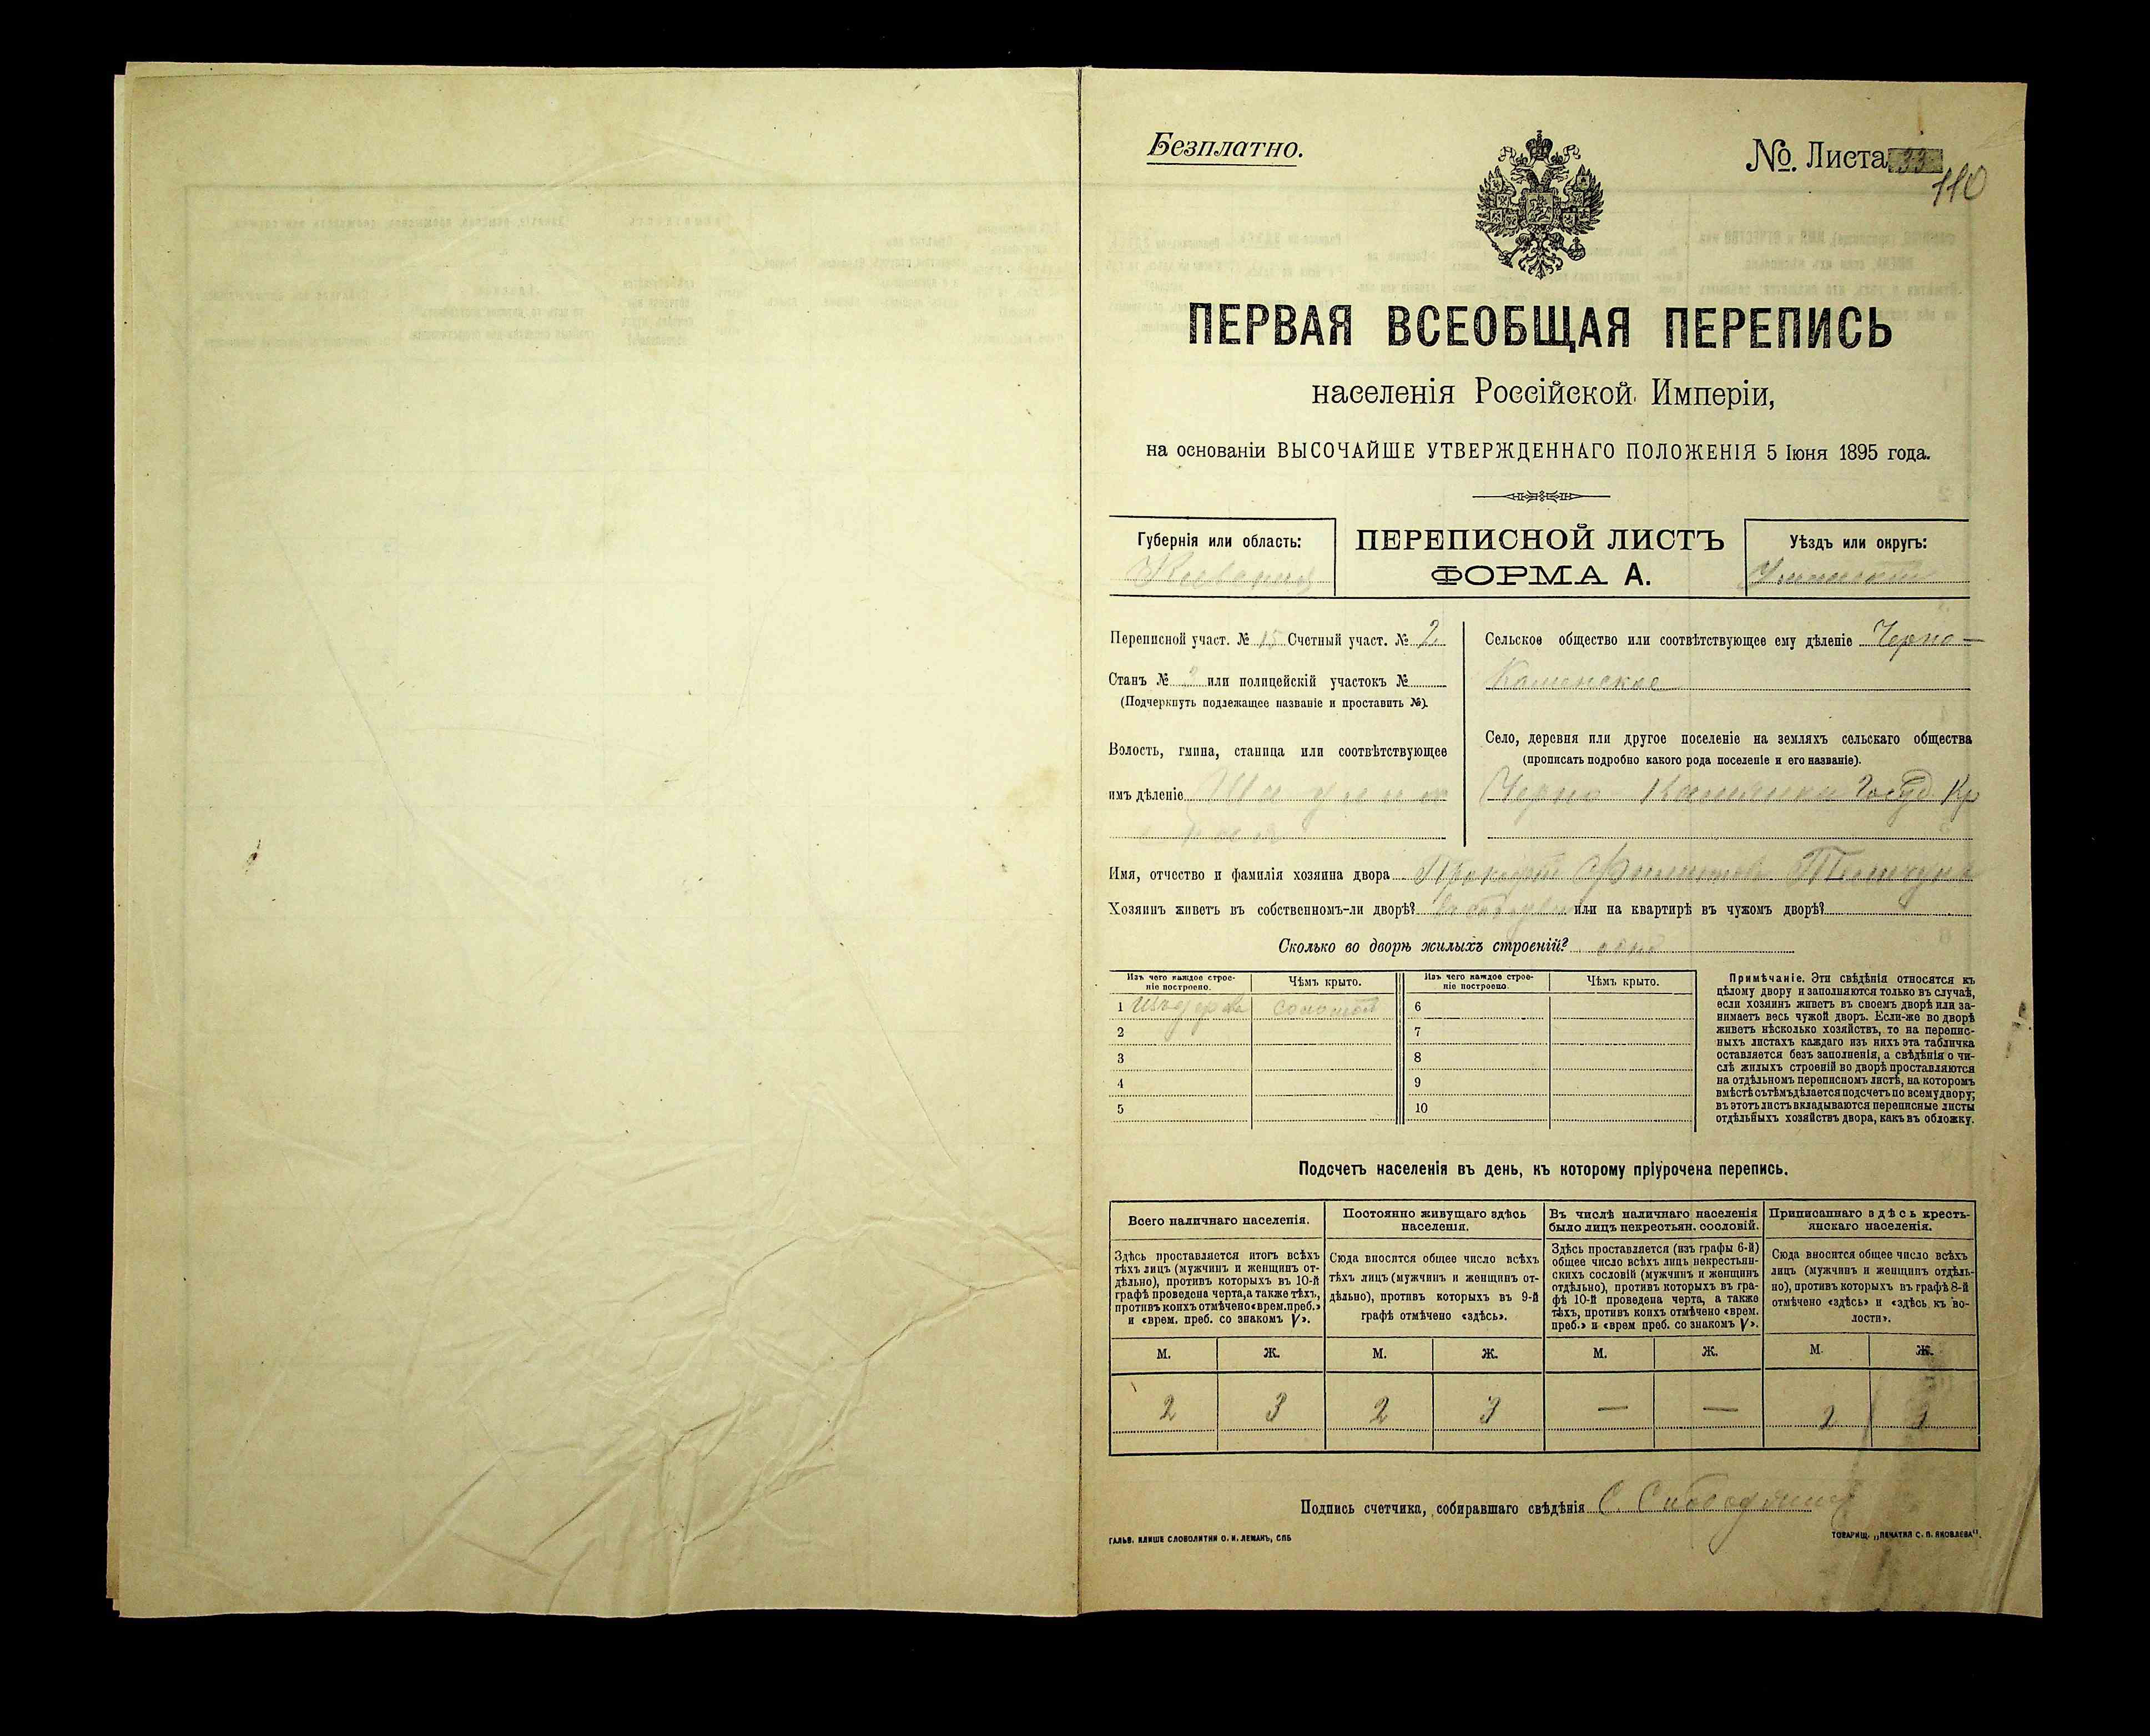 Безплатно.
№. Листа 33
110
ПЕРВАЯ ВСЕОБЩАЯ ПЕРЕПИСЬ
населенія Россійской Имперіи,
на основаніи ВЫСОЧАЙШЕ УТВЕРЖДЕННАГО ПОЛОЖЕНІЯ 5 Іюня 1895 года.
Губернія или область:
Кіевская
ПЕРЕПИСНОЙ ЛИСТЪ
ФОРМА А.
Уѣздъ или округъ:
Уманскій
Переписной участ. № 15 Счетный участ. № 2
Станъ № 3 или полицейскій участокъ №
(Подчеркнуть подлежащее названіе и проставить №).
Волость, гмина, станица или соотвѣтствующее
имъ дѣленіе
Сельское общество или соотвѣтствующее ему дѣленіе Черно-
Каменское
Село, деревня или другое поселеніе на земляхъ сельскаго общества
(прописать подробно какого рода поселеніе и его названіе).
Черно-Камянка Госуд. Кр
Имя, отчество и фамилія хозяина двора
Хозяинъ живетъ въ собственномъ-ли дворѣ? или на квартирѣ въ чужомъ дворѣ?
Сколько во дворѣ жилыхъ строеній? одно
Изъ чего каждое строе-
ніе построено.
Чѣмъ крыто.
Изъ чего каждое строе-
ніе построено.
Чѣмъ крыто.
1 Изъ дерева соломой 6
2 7
3 8
4 9
5 10
Примѣчаніе. Эти свѣдѣнія относятся къ
цѣлому двору и заполняются только въ случаѣ,
если хозяинъ живетъ въ своемъ дворѣ или за-
нимаетъ весь чужой дворъ. Если-же во дворѣ
живетъ нѣсколько хозяйствъ, то на перепис-
ныхъ листахъ каждаго изъ нихъ эта табличка
оставляется безъ заполненія, а свѣдѣнія о чи-
слѣ жилыхъ строеній во дворѣ проставляются
на отдѣльномъ переписномъ листѣ, на которомъ
вмѣстѣ съ тѣмъ дѣлается подсчетъ по всему двору;
въ этотъ листъ вкладываются переписные листы
отдѣльныхъ хозяйствъ двора, какъ въ обложку.
Подсчетъ населенія въ день, къ которому пріурочена перепись.
Всего наличнаго населенія.
Здѣсь проставляется итогъ всѣхъ
тѣхъ лицъ (мужчинъ и женщинъ от-
дѣльно), противъ которыхъ въ 10-й
графѣ проведена черта, а также тѣхъ,
противъ коихъ отмѣчено «врем. преб.»
и «врем. преб. со знакомъ V».
Постоянно живущаго здѣсь
населенія.
Сюда вносится общее число всѣхъ
тѣхъ лицъ (мужчинъ и женщинъ от-
дѣльно), противъ которыхъ въ 9-й
графѣ отмѣчено «здѣсь».
Въ числѣ наличнаго населенія
было лицъ некрестьян. сословій.
Здѣсь проставляется (изъ графы 6-й)
общее число всѣхъ лицъ некрестьян-
скихъ сословій (мужчинъ и женщинъ
отдѣльно), противъ которыхъ въ гра-
фѣ 10-й проведена черта, а также
тѣхъ, противъ коихъ отмѣчено «врем.
преб.» и «врем преб. со знакомъ V».
Приписаннаго здѣсь кресть-
янскаго населенія.
Сюда вносится общее число всѣхъ
лицъ (мужчинъ и женщинъ отдѣль-
но), противъ которыхъ въ графѣ 8-й
отмѣчено «здѣсь» и «здѣсь, къ во-
лости».
М. Ж. М. Ж. М. Ж. М. Ж.
2 3 2 3 — — 2 3
Подпись счетчика, собиравшаго свѣдѣнія
ГАЛЬВ. КЛИШЕ СЛОВОЛИТНИ О. И. ЛЕМАНЪ, СПБ
ТОВАРИЩ. „ПЕЧАТНЯ С. П. ЯКОВЛЕВА".